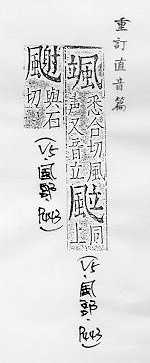 重訂直音篇
颯悉合切風声又音立䬃同上
(V5·風部·P443)
與石切
(V5·風部·P443)